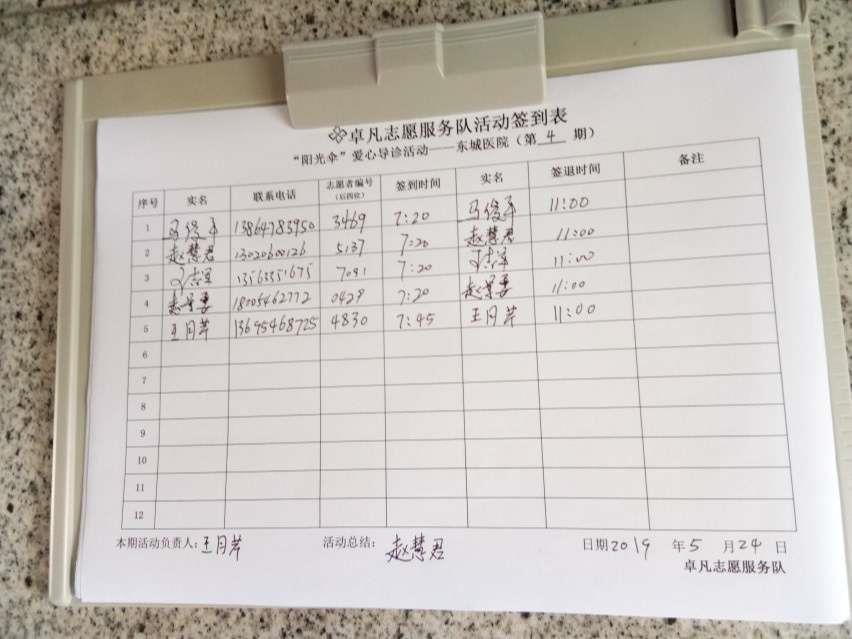 卓凡志愿服务队活动签到表
“阳光伞”爱心导诊活动——东城医院（第 4 期）
序号 实名 联系电话 志愿者编号（后四位） 签到时间 实名 签退时间 备注
1 马俊平 13864783950 3469 7:20 马俊平 11:00
2 赵慧君 13020600126 5137 7:20 赵慧君 11:00
3 13563351675 7091 7:20 11:00
4 18005462772 0429 7:20 11:00
5 王月芹 13695468725 4830 7:45 王月芹 11:00
6
7
8
9
10
11
12
本期活动负责人：王月芹 活动总结：赵慧君 日期2019 年5 月24 日
卓凡志愿服务队